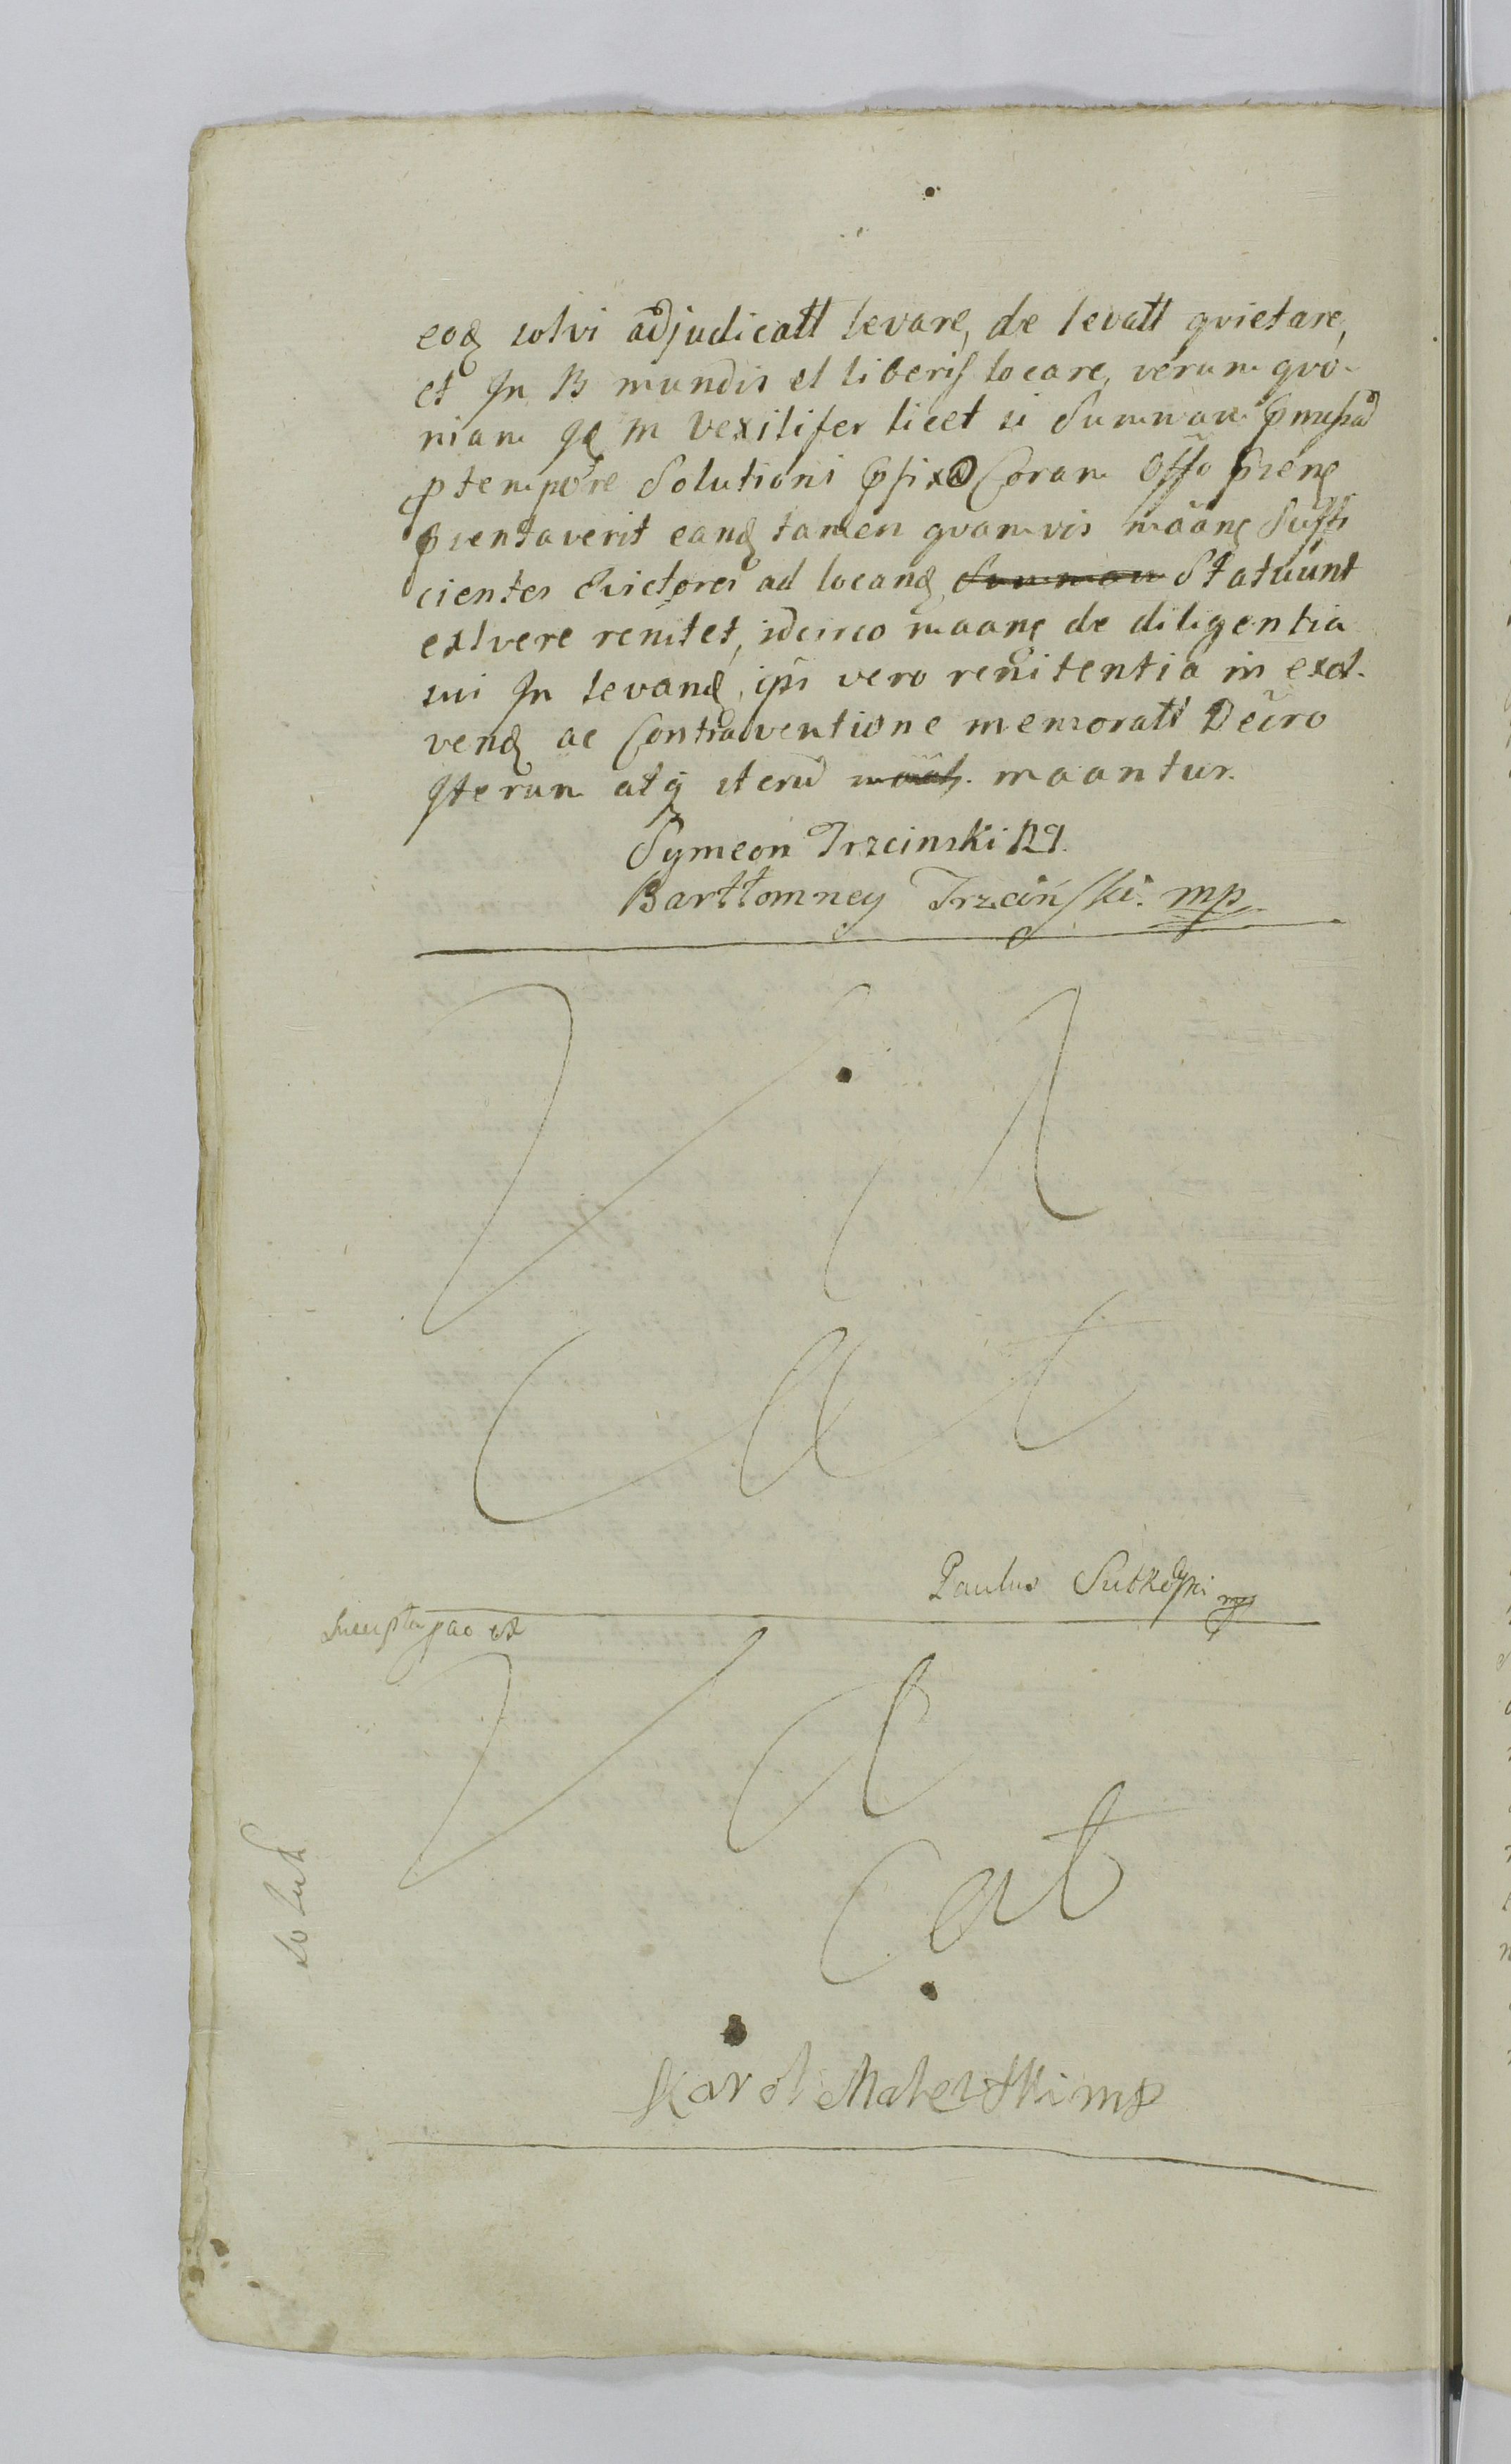 eoď solvi adjudicatt levare, de levatt quietare,
et In B mundis et liberis locare, verum quo-
niam Vexilifer licet si Summam
tempore Solutioni Coram Offo
tamen quamvis maanť Suffi
cientes Evictores ad locanď Summam Statuunt
exlvere renitet, idcirco maanť de diligentia
sui In levanď, ipsi vero renitentia in exol-
venď ac Contraventione memoratt Decro
Iterum atq iterū maantur.
Symeon Trzcinski
Barttomney Trzciński. mp
Va
cat
Paulus mp
Va
cat
Karol mp